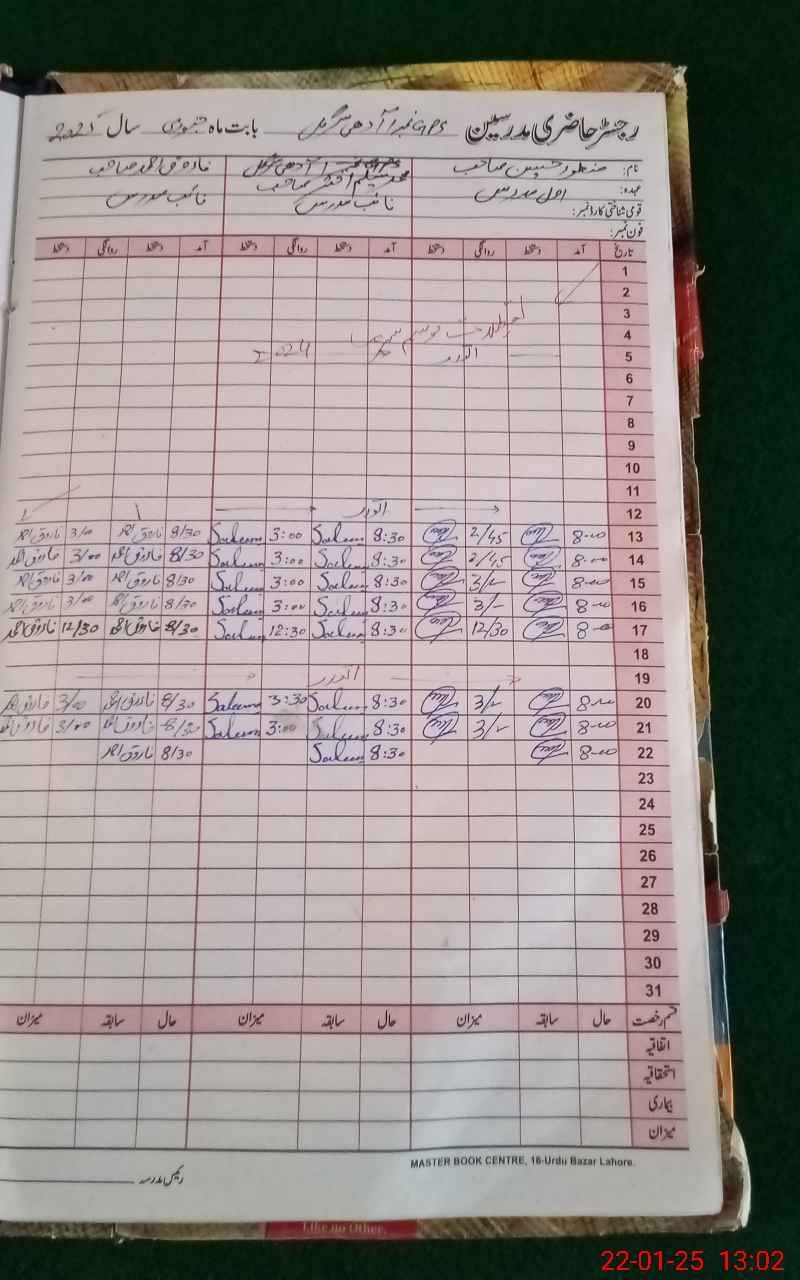 رجسٹر حاضری مدرسین GPS نمبر 1 آدھی سرگل بابت ماہ جنوری سال 2025
نام: منظور حسین صاحب GPS نمبر 1 آدھی سرگل محمد سلیم اختر صاحب فاروق احمد صاحب
عہدہ: اول مدرس نائب مدرس نائب مدرس
قومی شناختی کارڈ نمبر:
فون نمبر:
تاریخ آمد دستخط روانگی دستخط آمد دستخط روانگی دستخط آمد دستخط روانگی دستخط
1
2
3
4 موسم
5 اتوار 2024
6
7
8
9
10
11
12 اتوار
13 8-00 2/45 8:30 Saleem 3:00 Saleem 8/30 فاروق احمد 3/00 فاروق احمد
14 8-00 2/45 8:30 Saleem 3:00 Saleem 8/30 فاروق احمد 3/00 فاروق احمد
15 8-00 3/- 8:30 Saleem 3:00 Saleem 8/30 فاروق احمد 3/00 فاروق احمد
16 8-00 3/- 8:30 Saleem 3:00 Saleem 8/30 فاروق احمد 3/00 فاروق احمد
17 8-00 12/30 8:30 Saleem 12:30 Saleem 8/30 فاروق احمد 12/30 فاروق احمد
18
19 اتوار
20 8-00 3/- 8:30 Saleem 3:30 Saleem 8/30 فاروق احمد 3/00 فاروق احمد
21 8-00 3/- 8:30 Saleem 3:00 Saleem 8/30 فاروق احمد 3/00 فاروق احمد
22 8-00 8:30 Saleem 8/30 فاروق احمد
23
24
25
26
27
28
29
30
31
قسم رخصت حال سابقہ میزان حال سابقہ میزان حال سابقہ میزان
اتفاقیہ
استحقاقیہ
بیماری
میزان
MASTER BOOK CENTRE, 16-Urdu Bazar Lahore.
رئیس مدرسہ
Like no Other.
22-01-25 13:02